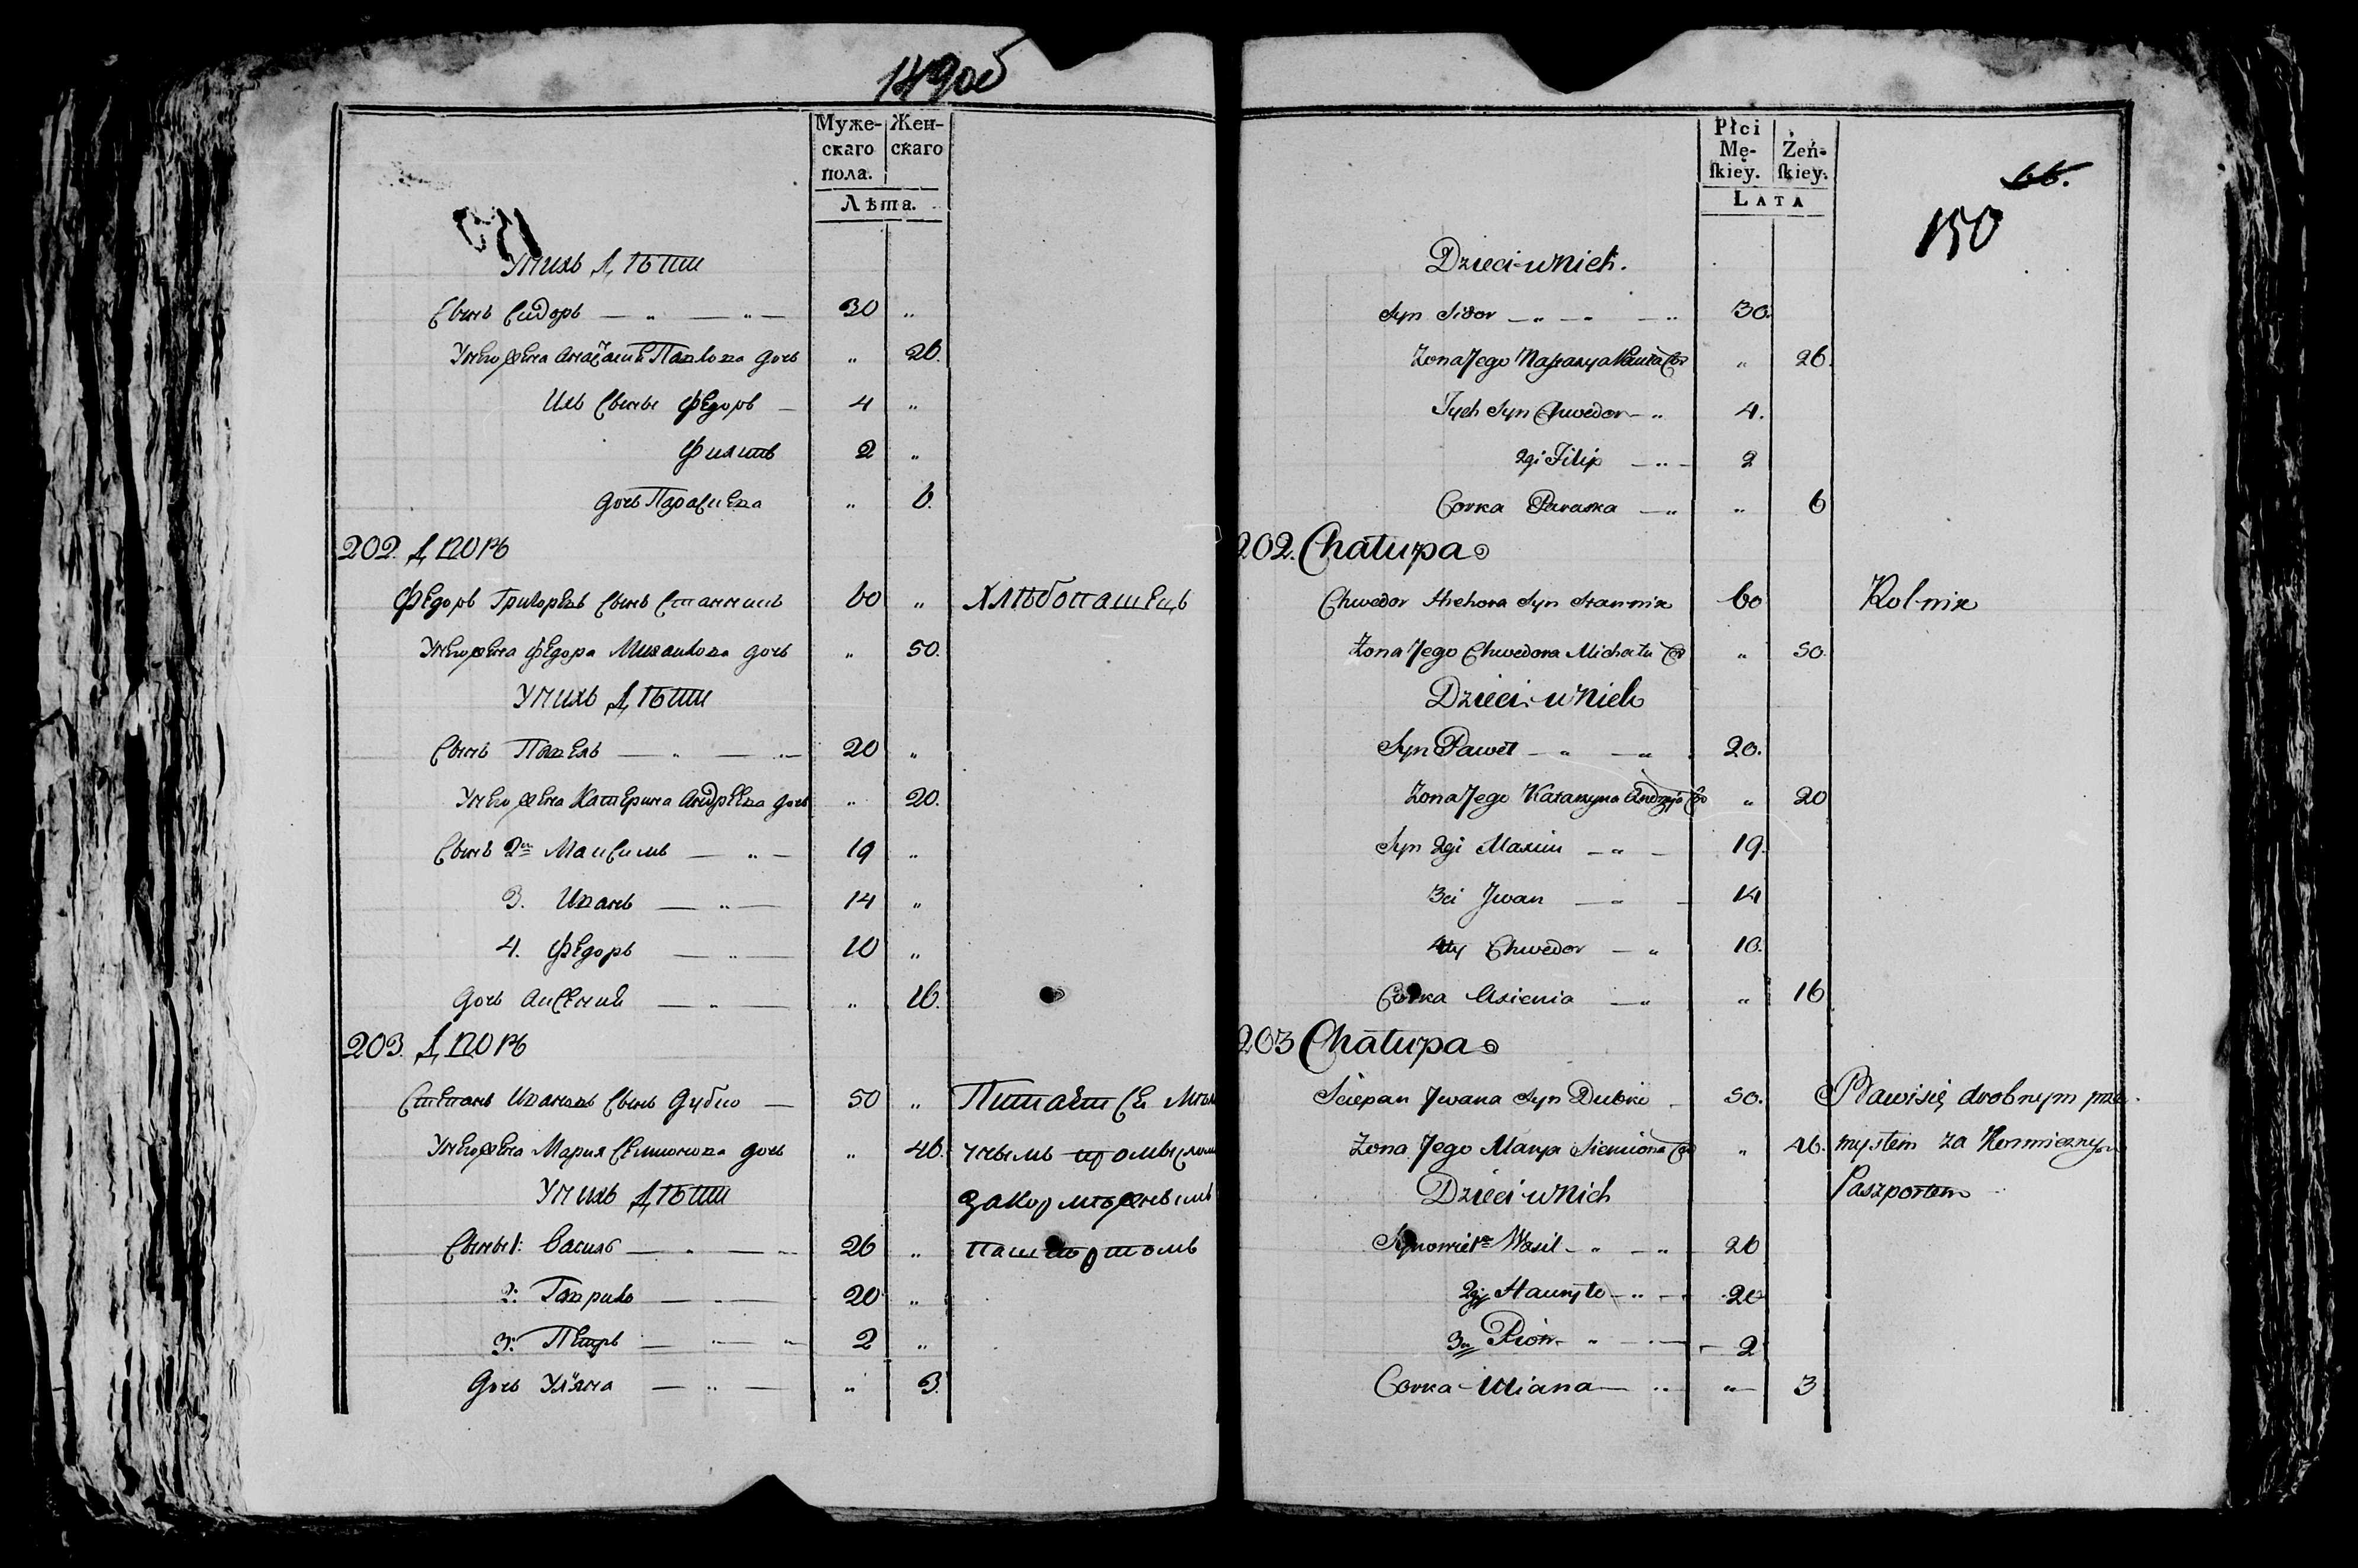 149об
Муже- Жен-
скаго скаго
пола.
Лѣта.
У нихъ Дѣти
Сынъ Сидоръ — „ — „ — 30 „
У него жена Анастасия Павлова дочь „ 26.
Ихъ Сыны Федоръ — 4 „
Филипъ 2 „
дочь Парасиева „ 6.
202. Дворъ
Федоръ Григорьевъ Сынъ Станникъ 60 „ Хлѣбопашецъ
У него жена Федора Михайлова дочь „ 50.
У нихъ Дѣти
Сынъ Павелъ — „ — „ — 20 „
У него жена Катерина Андреева дочь „ 20.
Сынъ 2й Максимъ — „ — 19 „
3. Иванъ — „ — 14 „
4. Федоръ — „ — 10 „
дочь Аксений — „ — „ 16.
203. Дворъ
Степанъ Ивановъ Сынъ Дубко — 50 „ Питается мѣл
У него жена Мария Семионова дочь „ 46. чнымъ промысломъ
У нихъ Дѣти закормежнымъ
Сыны 1: Василь — „ — 26 „ пашпортомъ
2: Гаврило — „ — 20 „
3: Петръ — „ — „ 2 „
дочь Уляна — „ — „ 3.
Płci
Mę- Żeń-
ſkiey. ſkiey.
LATA
66.
150
Dzieci u nich.
Syn Sidor — „ — „ 30.
Zona Jego Nastazya Pawła Cor „ 26.
Jych Syn Chwedor — „ 4.
2gi Filip — „ — 2
Corka Paraska — „ „ 6
202. Chałupa
Chwedor Hrehora Syn Stannik 60 Rolnik
Żona Jego Chwedora Michała Cor „ 50.
Dzieci u nich
Syn Paweł — „ — „ 20.
Zona Jego Katarzyna Andrzeja Co „ 20
Syn 2gi Maxim — „ — 19.
3ci Jwan — „ — 14
4ty Chwedor — „ 10.
Corka Axienia — „ „ 16
203 Chałupa
Sciepan Jwana Syn Dubko — 50. Bawi się drobnym prze-
Zona Jego Marya Siemiona Co „ 46. mysłem za Kormieżnym
Dzieci u nich Paszportem
Synowie 1szy Wasil — „ — „ — 26
2gi Hauryło — „ — 20
3ci Piotr — „ — 2
Corka Uliana — „ „ 3